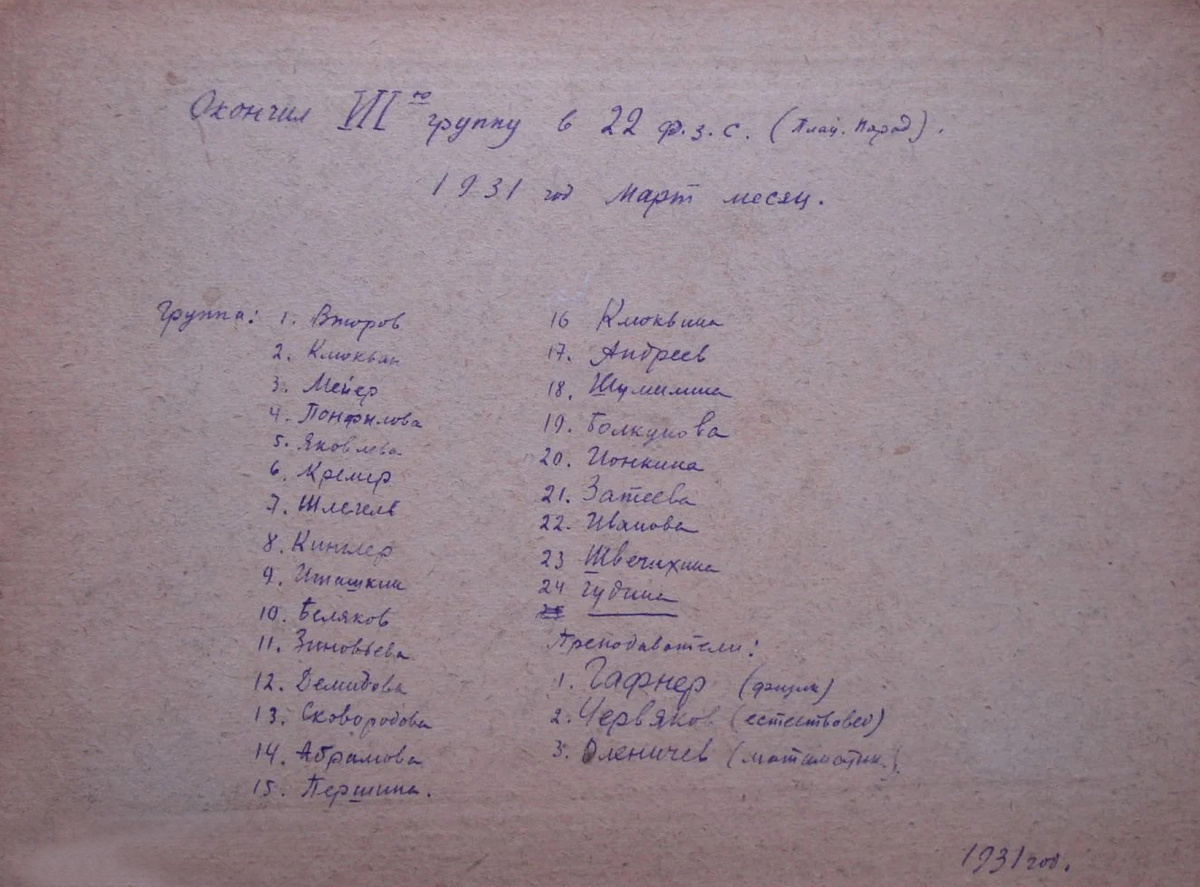 Окончил VII ую группу в 22 ф.з.с. (Плац. Парад).
1931 год Март месяц.
Группа: 1. Второв
2. Клюквин
3. Мейер
4. Понфилова
5. Яковлева
6. Кремер
7. Шлегель
8. Кинглер
9. Иташкин
10. Беляков
11. Зиновьева
12. Демидова
13. Сковородова
14. Абрамова
15. Першина.
16 Клюквина
17. Андреев
18. Шумилина
19. Болкунова
20. Ионкина
21. Затеева
22. Иванова
23 Швечихина
24 Гудина
Преподаватели:
1. Гафнер (физик)
2. Червяков (естествовед)
3. Оленичев (математик)
1931 год.